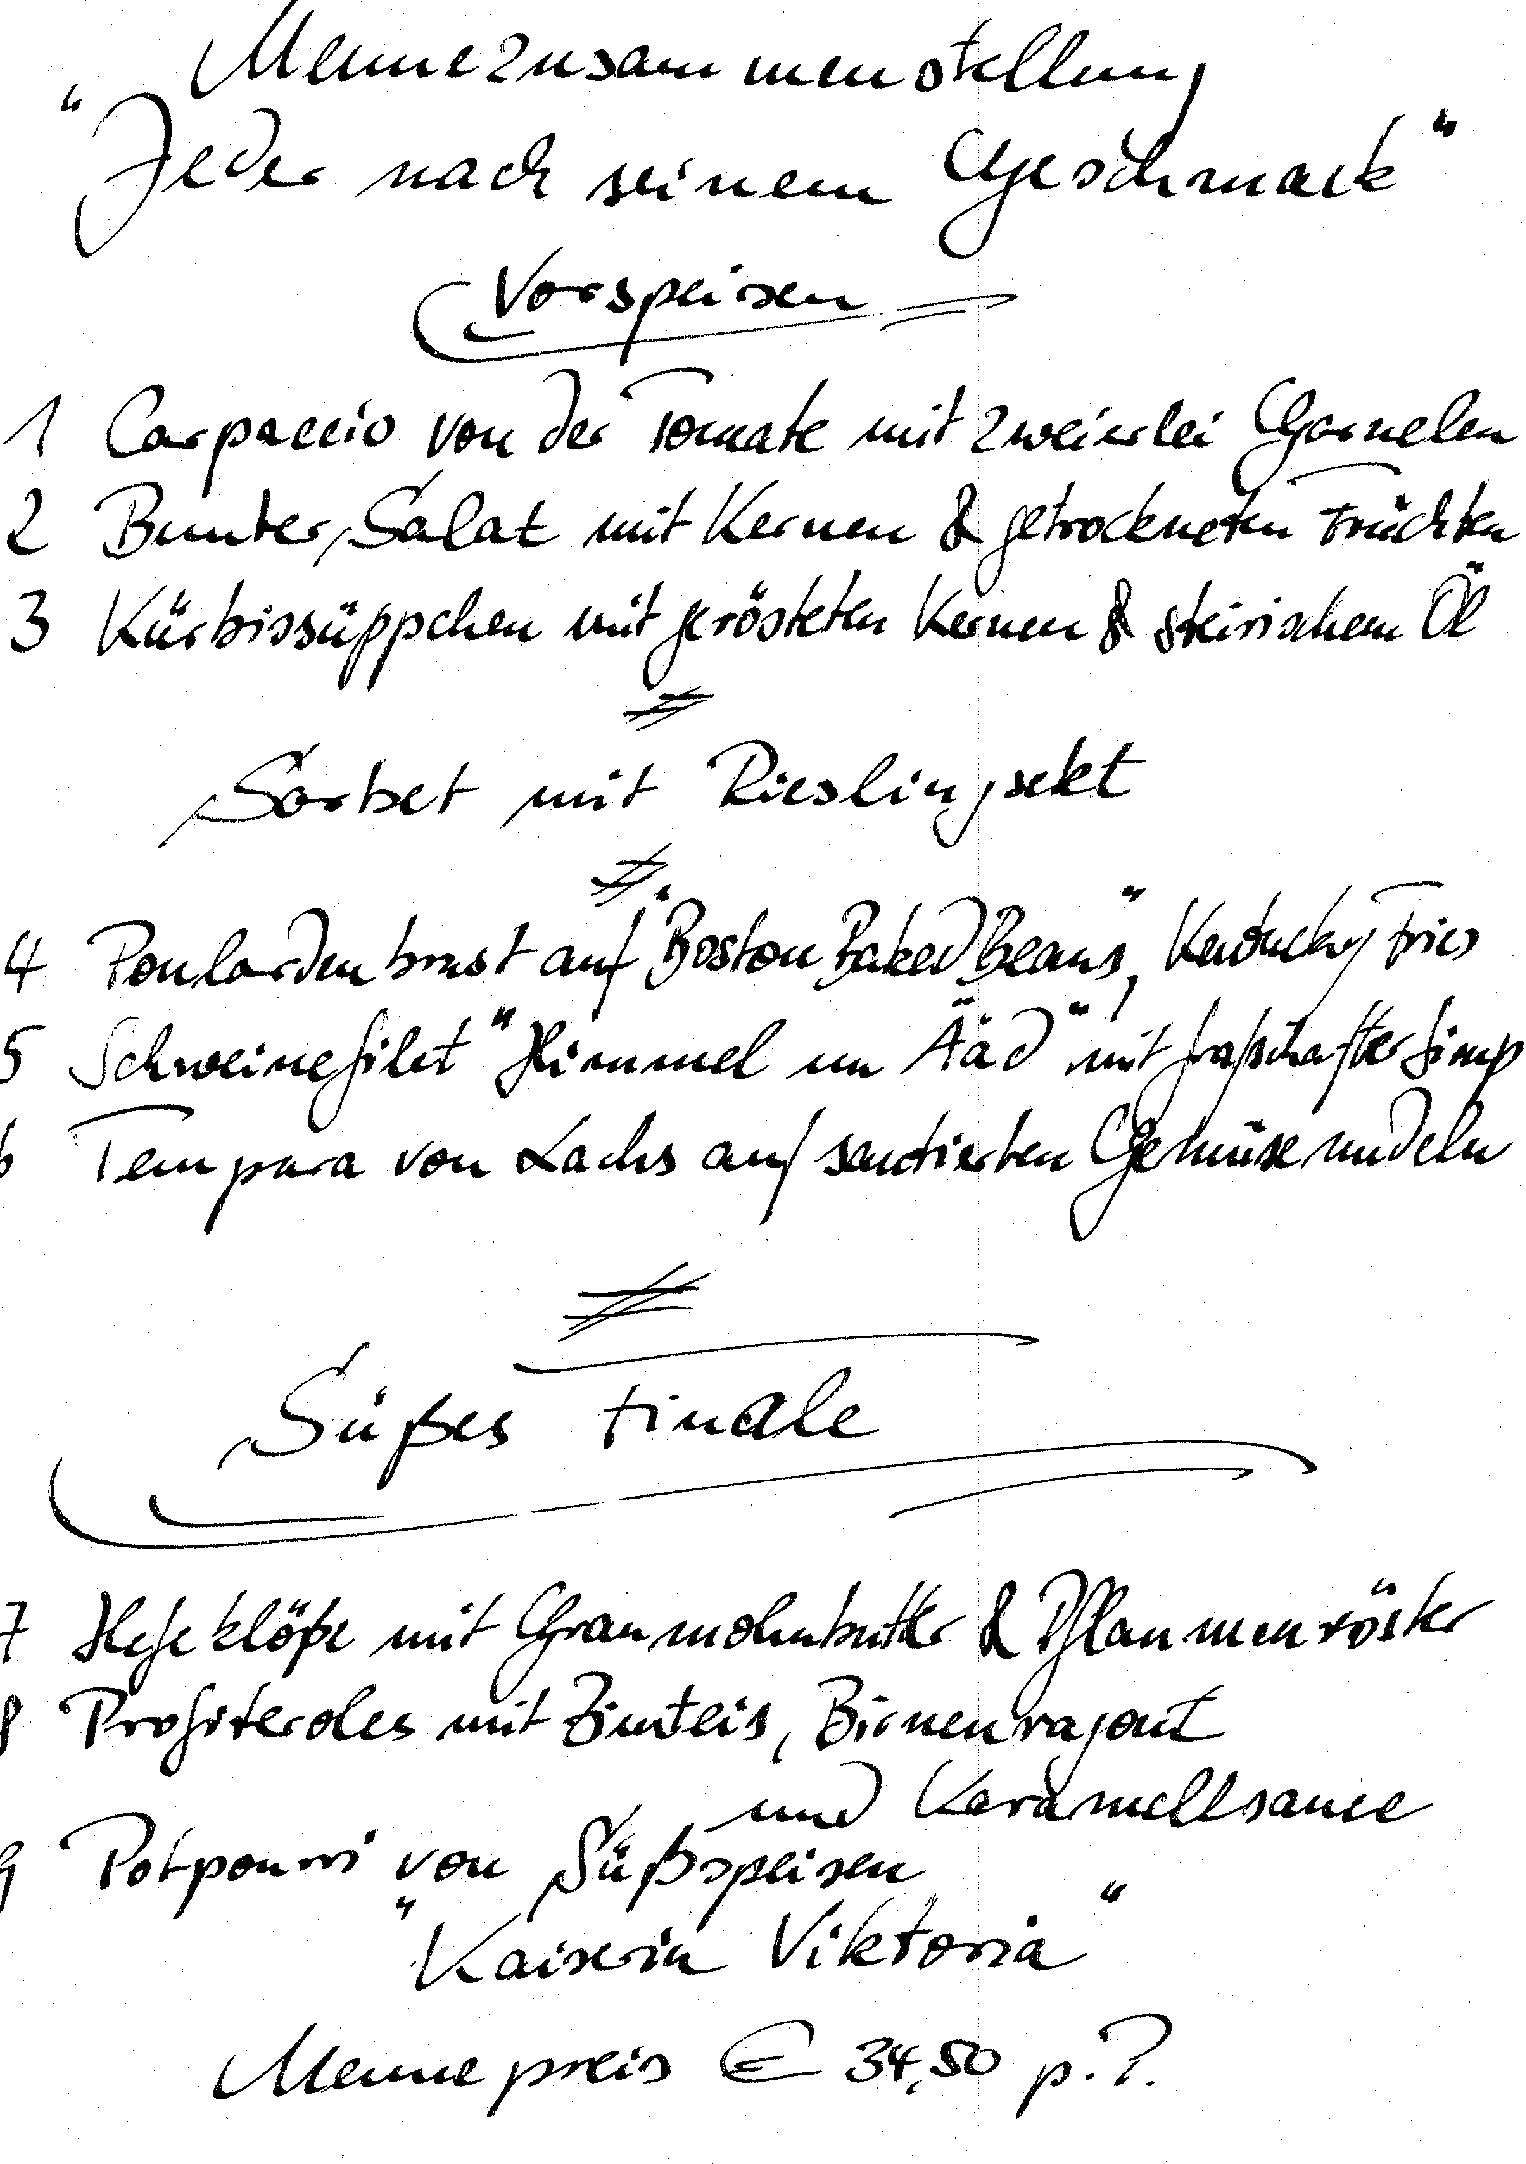 Menuezusammenstellung
"Jeder nach seinem Geschmack"
Vorspeisen
1 Carpaccio von der Tomate mit zweierlei Garnelen
2 Bunter Salat mit Kernen & getrockneten Früchten
3 Kürbissüppchen mit gerösteten Kernen & steirischem Öl
#
Sorbet mit Rieslingsekt
#
4 Poulardenbrust auf "Boston Baked Beans", Kentucky Fries
5 Schweinefilet "Himmel un Ääd" mit
6 Tempura von Lachs auf sautierten Gemüsenudeln
#
Süßes Finale
7 Hefeklöße mit Graumohnbutter & Pflaumenröster
8 Profiteroles mit Zimteis, Birnenragout
und Karamellsauce
9 Potpourri von Süßspeisen
"Kaiserin Viktoria"
Menuepreis € 34,50 p.P.